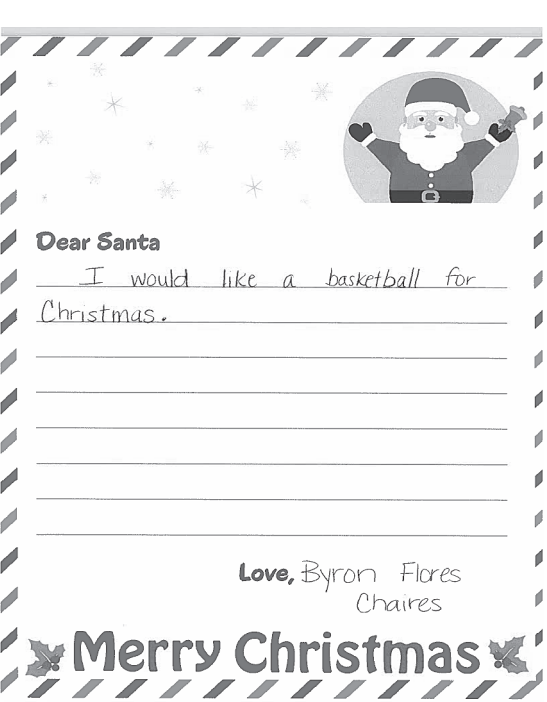 Dear Santa
I would like a basketball for
Christmas.
Love, Byron Flores
Chaires
Merry Christmas